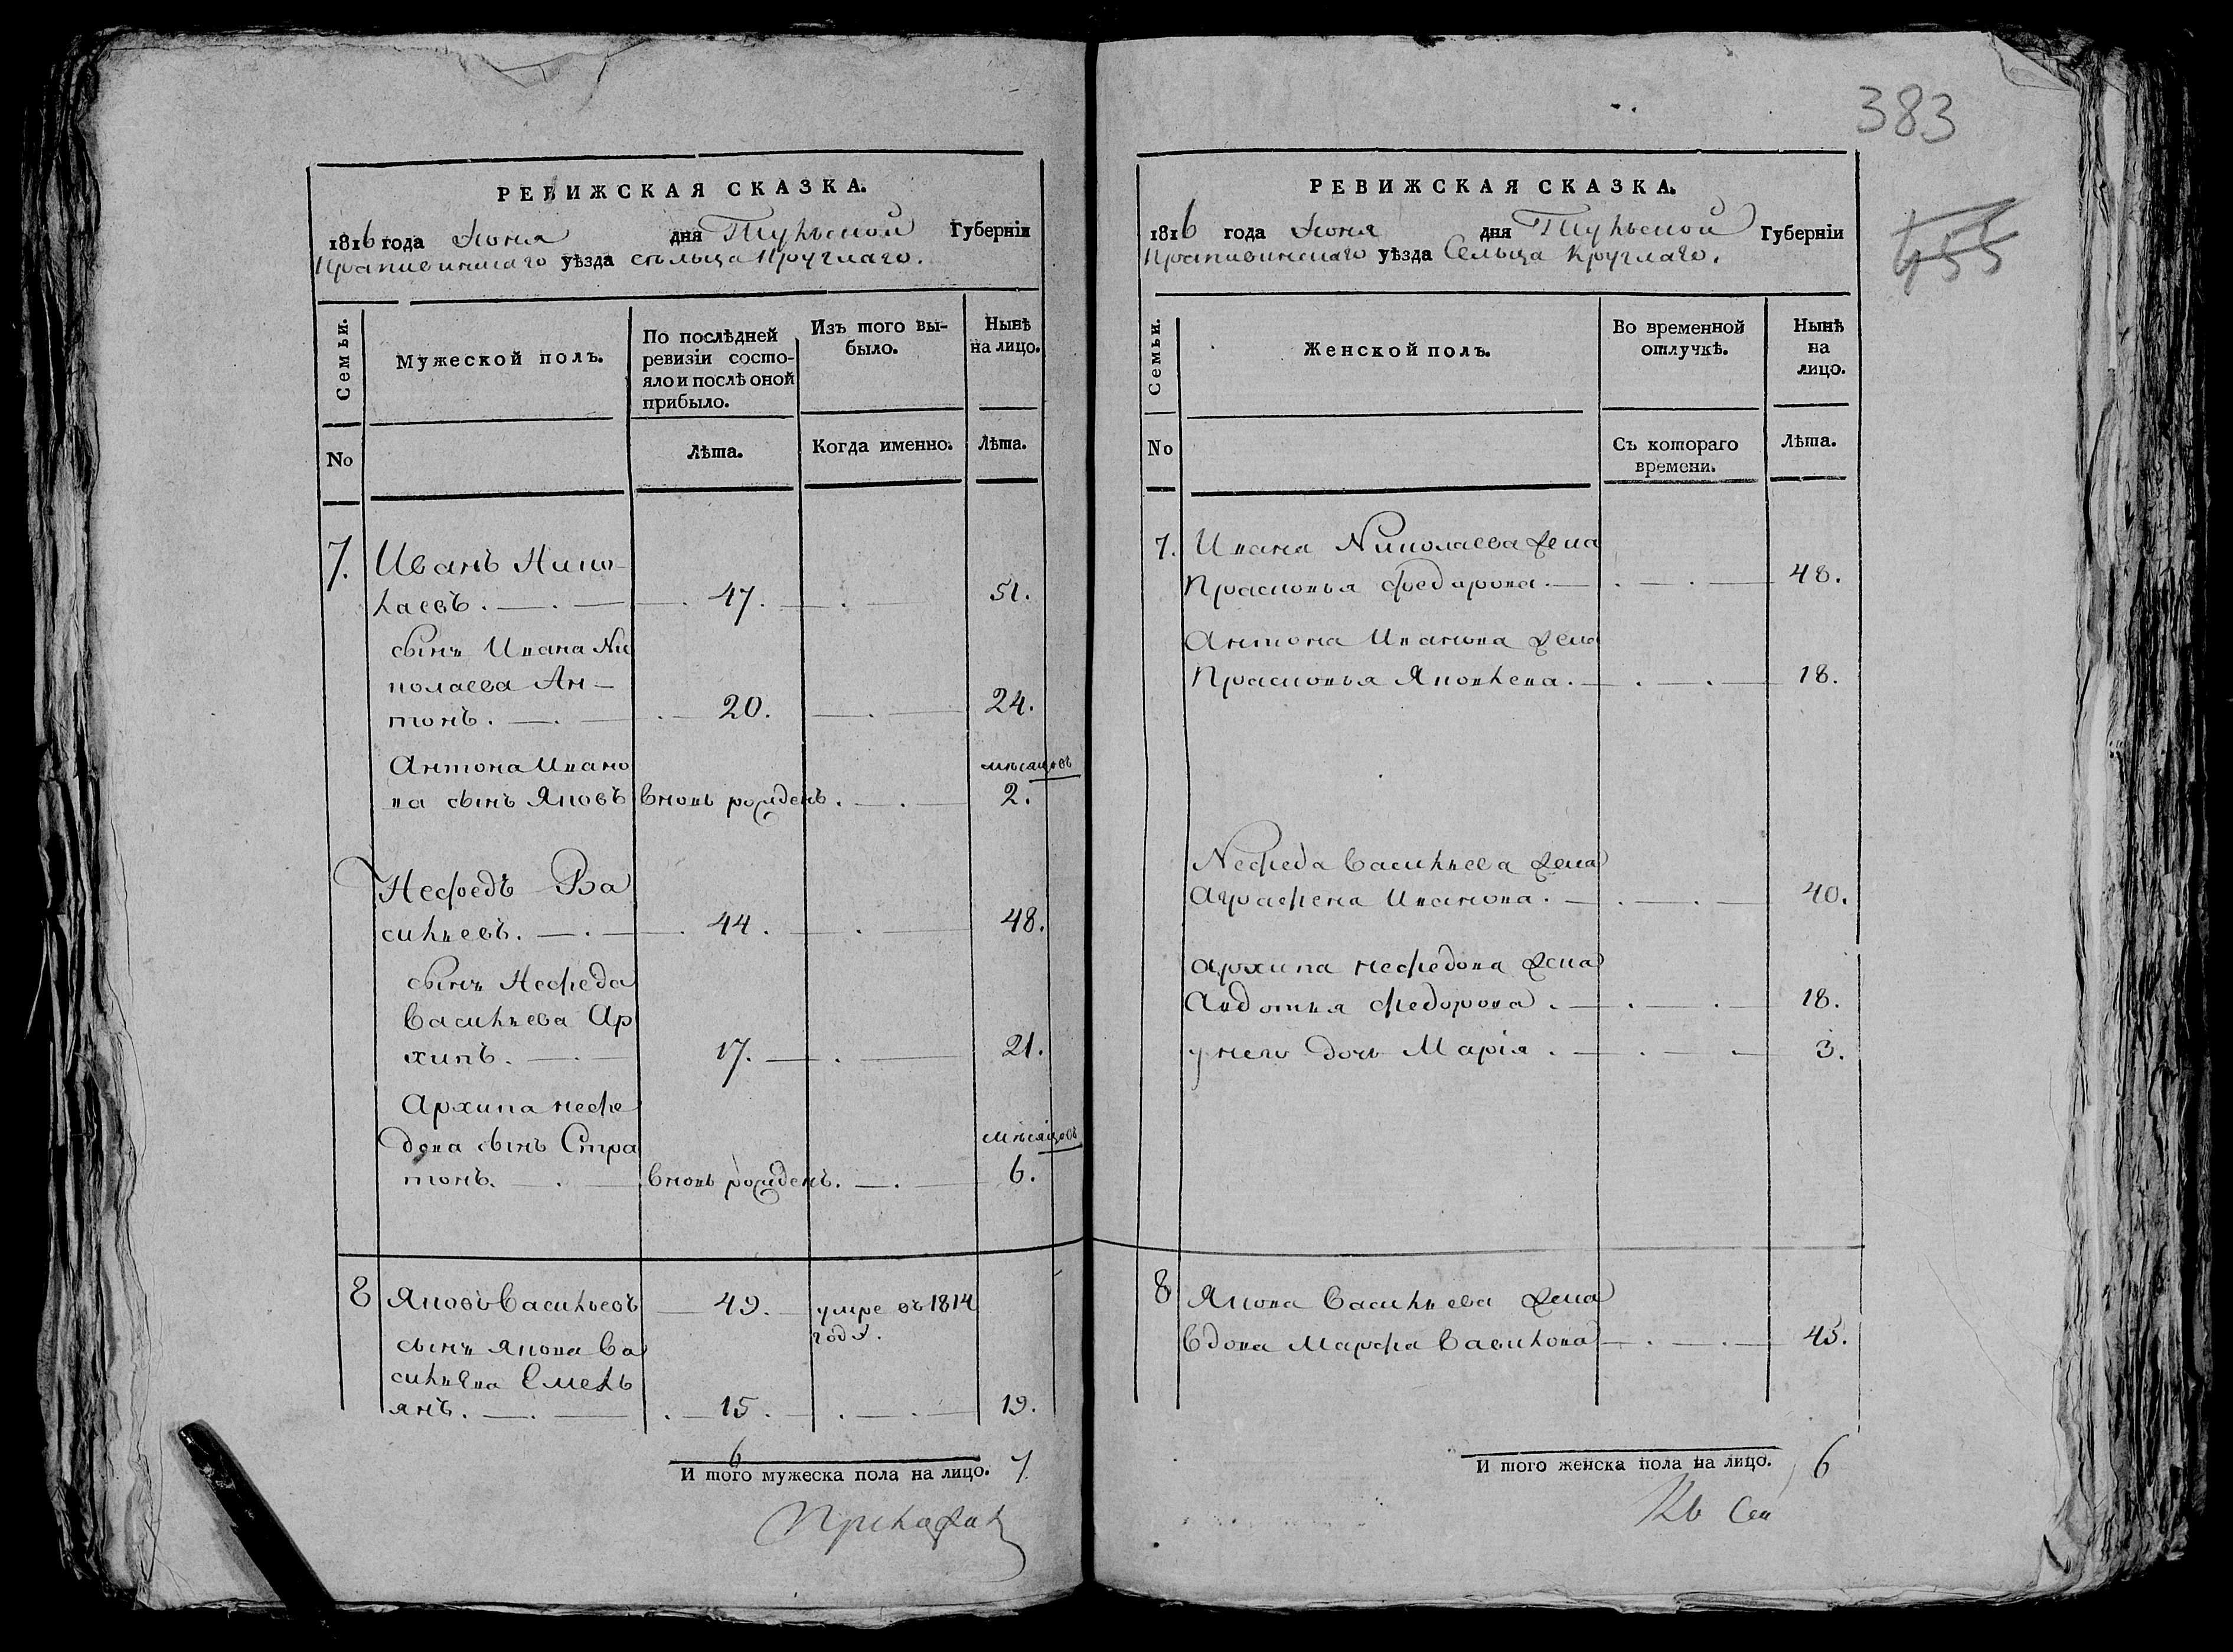 РЕВИЖСКАЯ СКАЗКА.
1816 года Июня дня Тульской Губерніи
Крапивинскаго уѣзда сельца Круглаго.
Семьи.
Мужеской полъ.
По послѣдней
ревизіи состо-
яло и послѣ оной
прибыло.
Изъ того вы-
было.
Нынѣ
на лицо.
No
Лѣта.
Когда именно.
Лѣта.
7. Иванъ Нико-
лаевъ. 47. 51.
сынъ Ивана Ни
колаева Ан-
тонъ. 20. 24.
Антона Ивано мѣсяцовъ
ва сынъ Яковъ вновь рожденъ. 2.
Нефедъ Ва
сильевъ. 44. 48.
сынъ Нефеда
Васильева Ар
хипъ. 17. 21.
Архипа Нефе
дова сынъ Стра мѣсяцовъ
тонъ. вновь рожденъ. 6.
8 Яковъ Васильевъ 49. умре въ 1814
году.
сынъ Якова Ва
сильева Емель
янъ. 15. 19.
6
И того мужеска пола на лицо. 7
383
455
РЕВИЖСКАЯ СКАЗКА.
1816 года Июня дня Тульской Губерніи
Крапивинскаго уѣзда Сельца Круглаго.
Семьи.
Женской полъ.
Во временной
отлучкѣ.
Нынѣ
на
лицо.
No
Съ котораго
времени.
Лѣта.
7. Ивана Николаева жена
Прасковья Федарова. 48.
Антона Иванова жена
Прасковья Яковлева. 18.
Нефеда Васильева жена
Аграфена Иванова. 40.
Архипа Нефедова жена
Авдотья Федорова. 18.
у него дочь Марія. 3.
8 Якова Васильева жена
вдова Марфа Васильева 45.
И того женска пола на лицо. 6
Къ Сей